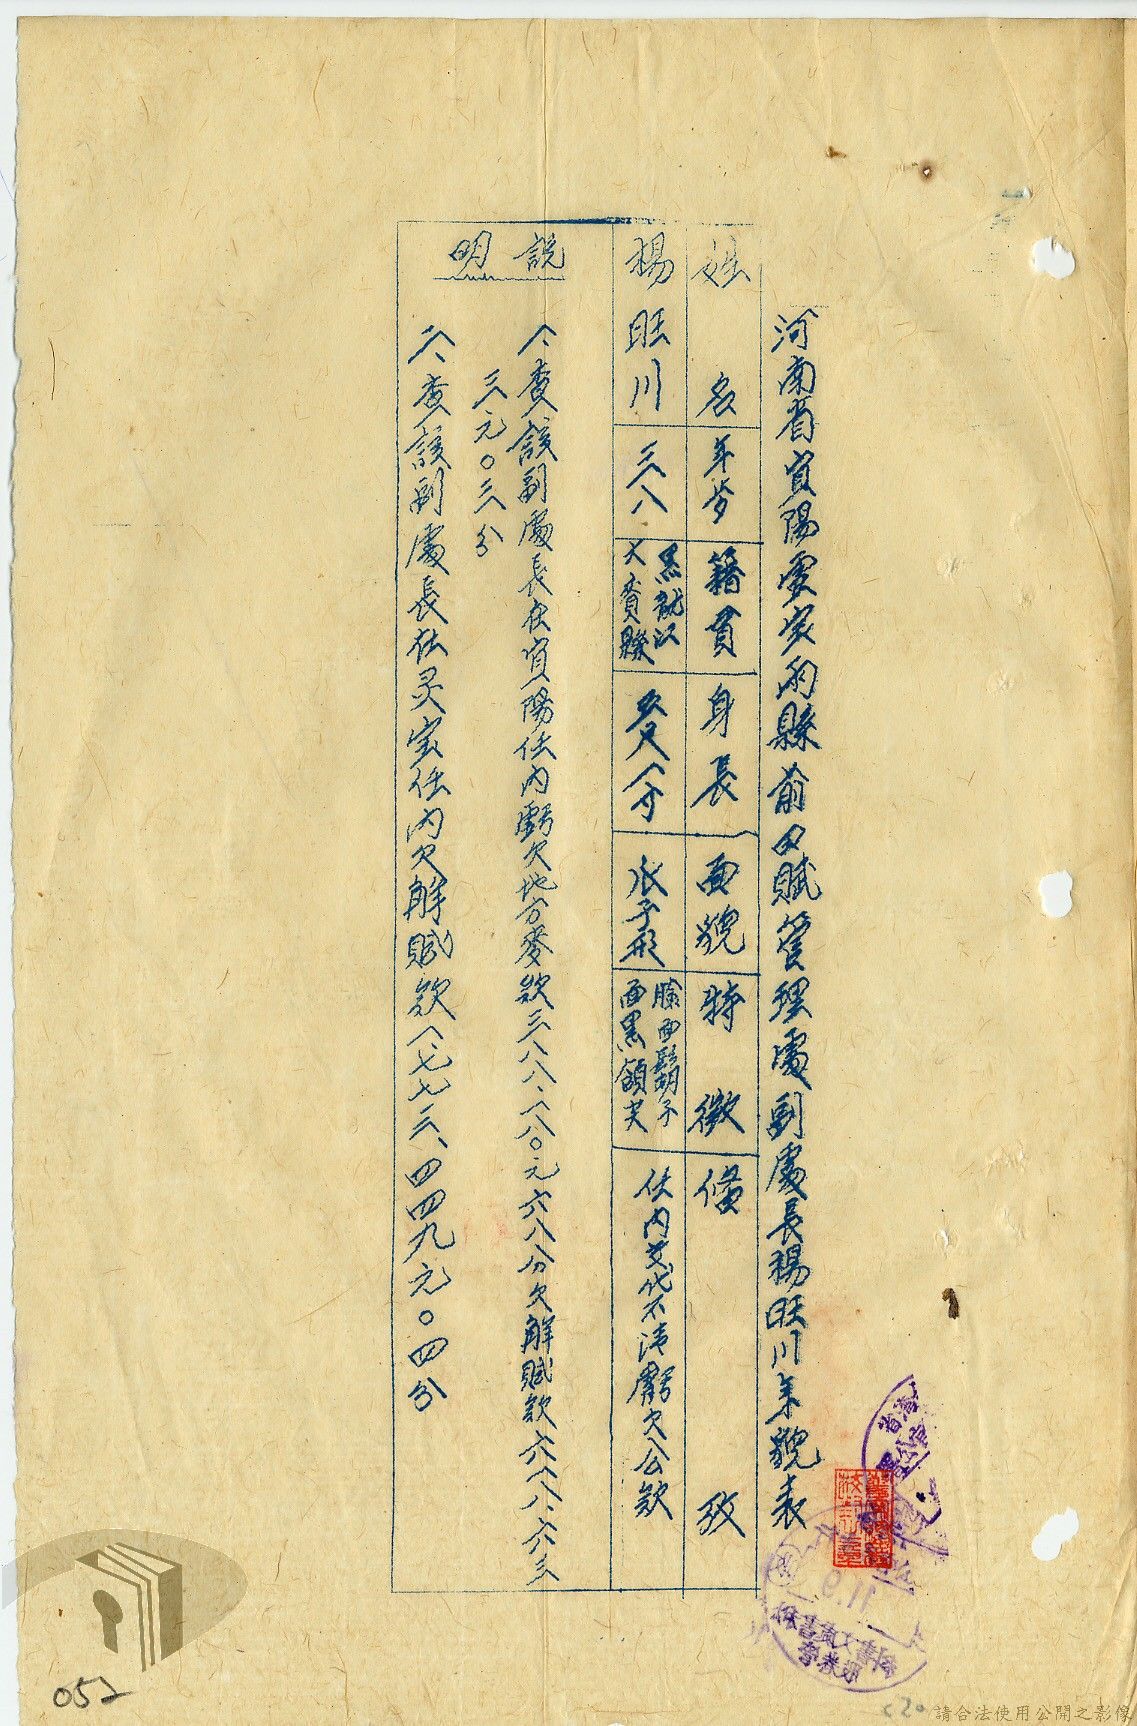 河南省宜陽靈宝兩縣前田賦管理處副處長楊旺川年貌表
姓名
年岁
籍貫
身長
面貌
特徵
備攷
楊旺川
三八
黑龍江
大賚縣
五尺一寸
瓜子形
臉面鬍子
面黑額尖
任内交代不清虧欠公款
說明
一、查該副處長在宜陽任内虧欠地方麥款三八八、一八〇元六八分欠解賦款六一八、六三
三元〇三分
二、查該副處長在灵宝任内欠解賦款一、七七三、四四九元〇四分
052
請合法使用公開之影像